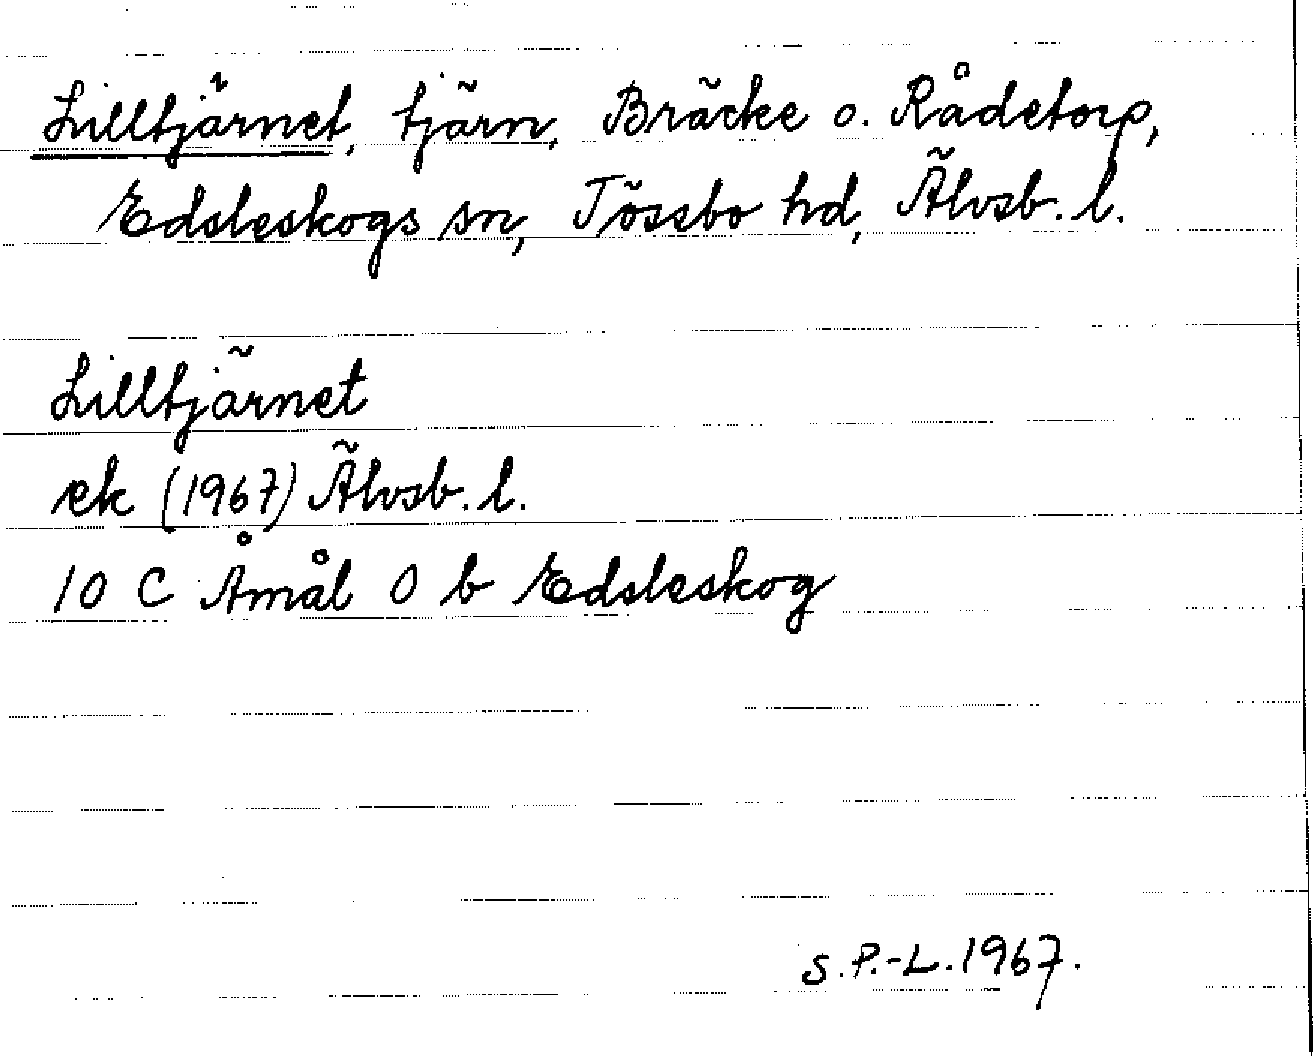 Lilltjärnet, tjärn, Bräcke o. Rådetorp,
Edsleskogs sn, Tössbo hd, Älvsb. l.
Lilltjärnet
ek (1967) Älvsb. l.
10 C Åmål 0 b Edsleskog
S.P.-L. 1967.